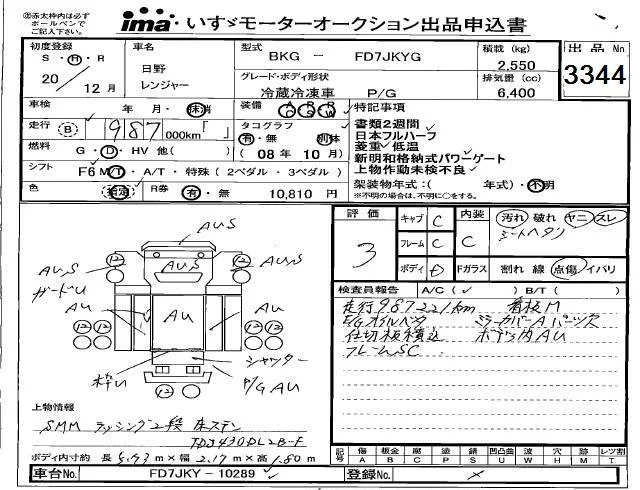 ㊟赤太枠内は必ず
ボールペンで
ご記入下さい。
ima いすゞモーターオークション出品申込書
初度登録 S・H・R 20 / 12 月
車名 日野 レンジャー
型式 BKG - FD7JKYG
積載 (kg) 2,550
出品No. 3344
グレード・ボディ形状 冷蔵冷凍車 P/G
排気量 (cc) 6,400
車検 年 月・抹消
装備 A P R
C S W
特記事項
走行 B 987 000km「 」
タコグラフ 有・無 別体
(08 年 10 月)
書類2週間
日本フルハーフ
菱重 低温
新明和格納式パワーゲート
上物作動未検不良
燃料 G・D・HV 他( )
シフト F6 MT・A/T・特殊 (2ペダル・3ペダル)
架装物年式:( 年式)・不明
※不明の場合は、不明に○をする。
色 指定 R券 有・無 10,810 円
評価 3
キャブ C
フレーム C
ボディ D
内装 C
Fガラス
汚れ 破れ ヤニ スレ
シートヘタリ
割れ 線 点傷 イバリ
検査員報告 A/C(✓) B/T( )
走行987221km 看板M
P/Gオイルペンク ミラーカバーAパーツ欠
仕切板積込 ボディ内AU
フレームSC
AUS
AUS
AUS
AUS
ガードU
AU
AU
AU
枠U
シャッター
P/G AU
12 12 12 12 12 12 12 12
上物情報
SMM ラッシング2段 床ステン
TDJ430DL2B-F
ボディ内寸約 長 5.93 m×幅 2.17 m×高 1.80 m
車台No. FD7JKY-10289
登録No.
記号 傷 A 板金 B 腐 C 塗 P 錆 S 凹凸曲 U 波 W 穴 H 跡 M レツ割 T